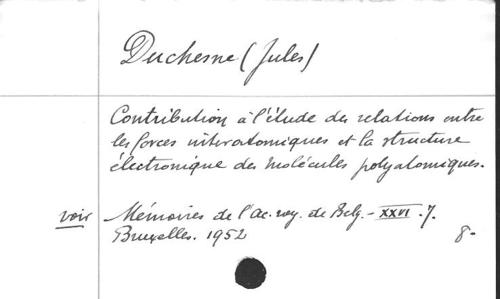 Duchesne (Jules)
Contribution à l'étude des relations entre
les forces interatomiques et la structure
électronique des molécules polyatomiques.
voir Mémoires de l'Ac. roy. de Belg. - XXVI. 7.
Bruxelles. 1952 8-